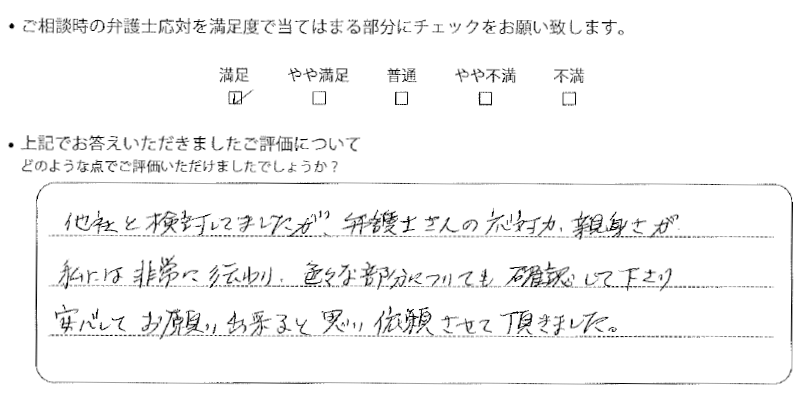 ・ご相談時の弁護士応対を満足度で当てはまる部分にチェックをお願い致します。
満足 やや満足 普通 やや不満 不満
☑ □ □ □ □
・上記でお答えいただきましたご評価について
どのような点でご評価いただけましたでしょうか？
他社と検討してましたが、弁護士さんの応対力、親身さが
私には非常に伝わり、色々な部分についても確認して下さり
安心してお願い出来ると思い依頼させて頂きました。